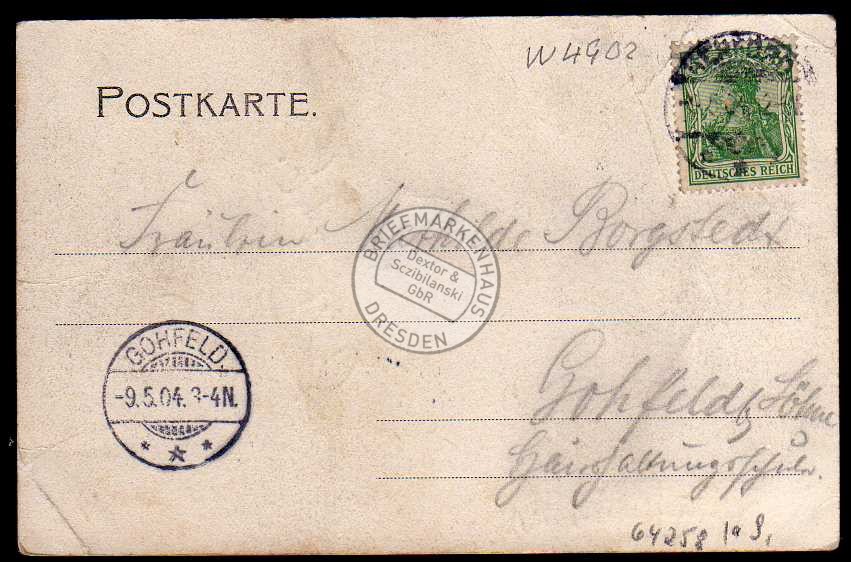 W4902
POSTKARTE.
DEUTSCHES REICH
Fräulein Mathilde Borgstedt
BRIEFMARKENHAUS
Dextor &
Sczibilanski
GbR
DRESDEN
GOHFELD.
-9.5.04. 3-4N.
Gohfeld b/ Löhne
Haushaltungsschule.
64258 Ia S.